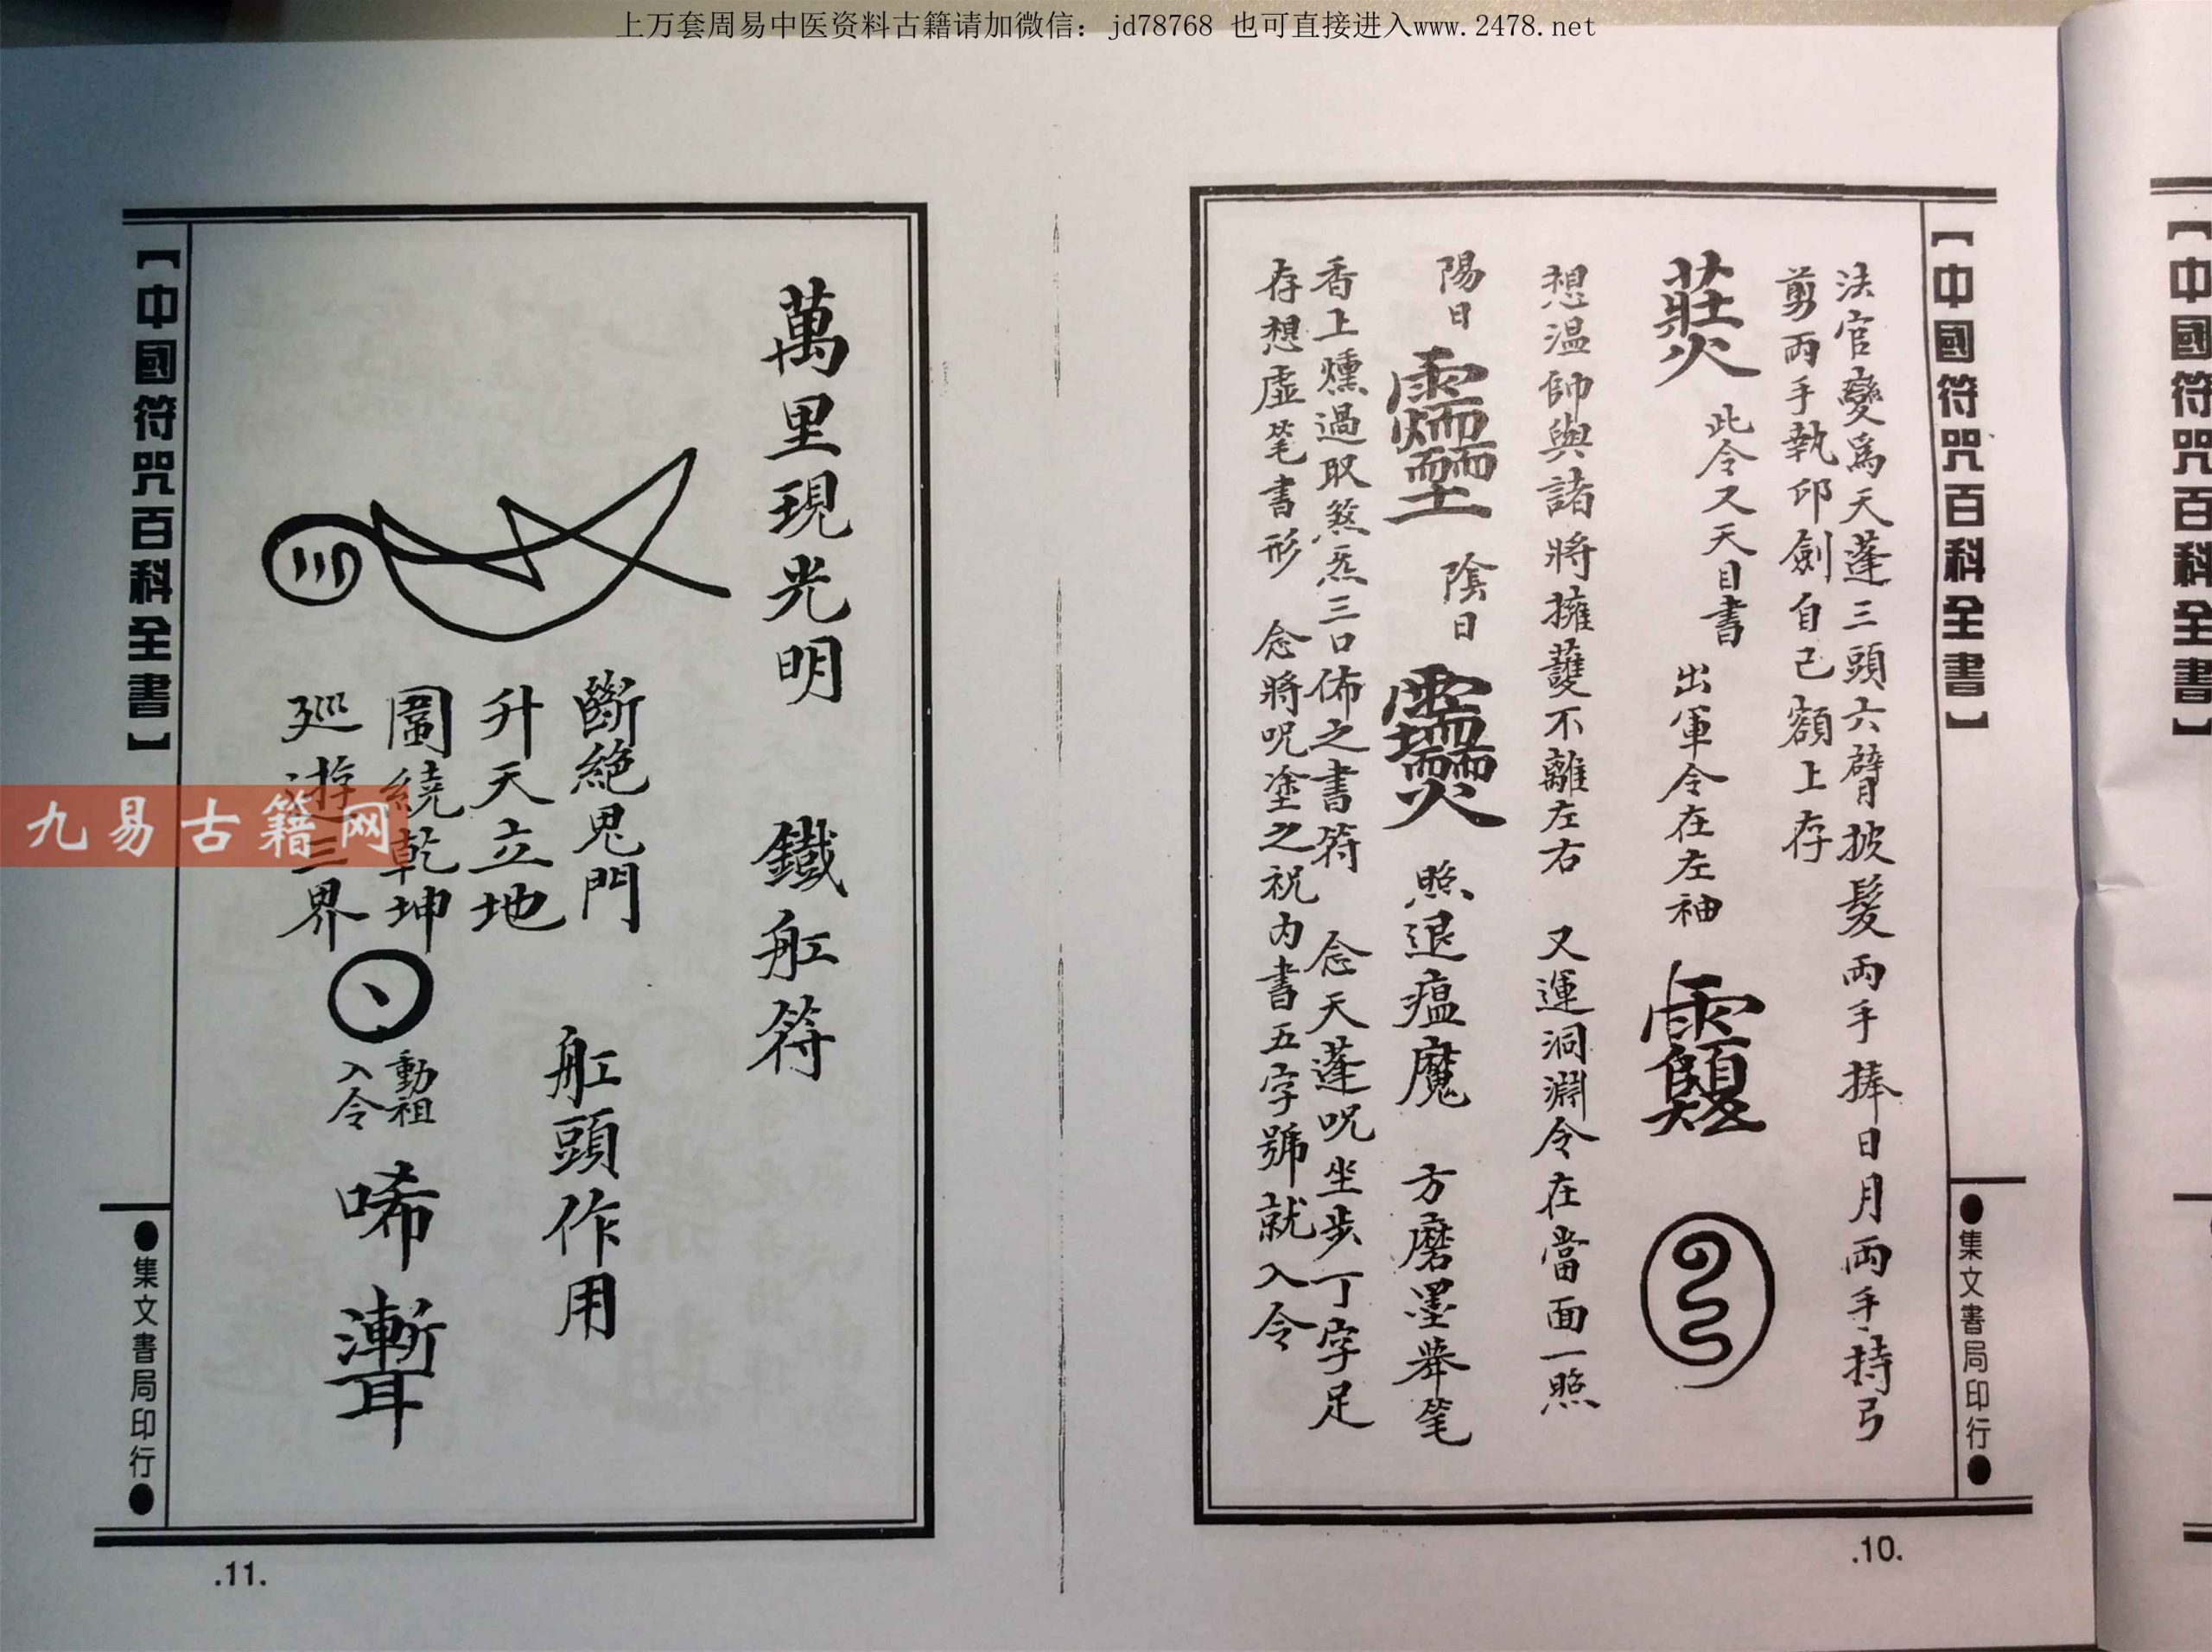 上万套周易中医资料古籍请加微信：jd78768 也可直接进入www.2478.net
【中國符咒百科全書】
●集文書局印行●
法官變爲天蓬三頭六臂披髮兩手捧日月兩手持弓
剪兩手執印劍自己額上存
此令又天目書 出軍令在左袖
想溫帥與諸將擁護不離左右 又運洞淵令在當面一照
陽日 陰日 照退瘟魔 方磨墨舉笔
香上燻過取煞炁三口佈之書符 念天蓬呪坐步丁字足
存想虛笔書形 念將呪塗之祝内書五字號就入令
.10.
萬里現光明 鐵舡符
斷絕鬼門 舡頭作用
升天立地
圍繞乾坤
廵遊三界
動祖
入令
唏
.11.
【中國符咒百科全書】
●集文書局印行●
九易古籍网
中國符咒百科全書】